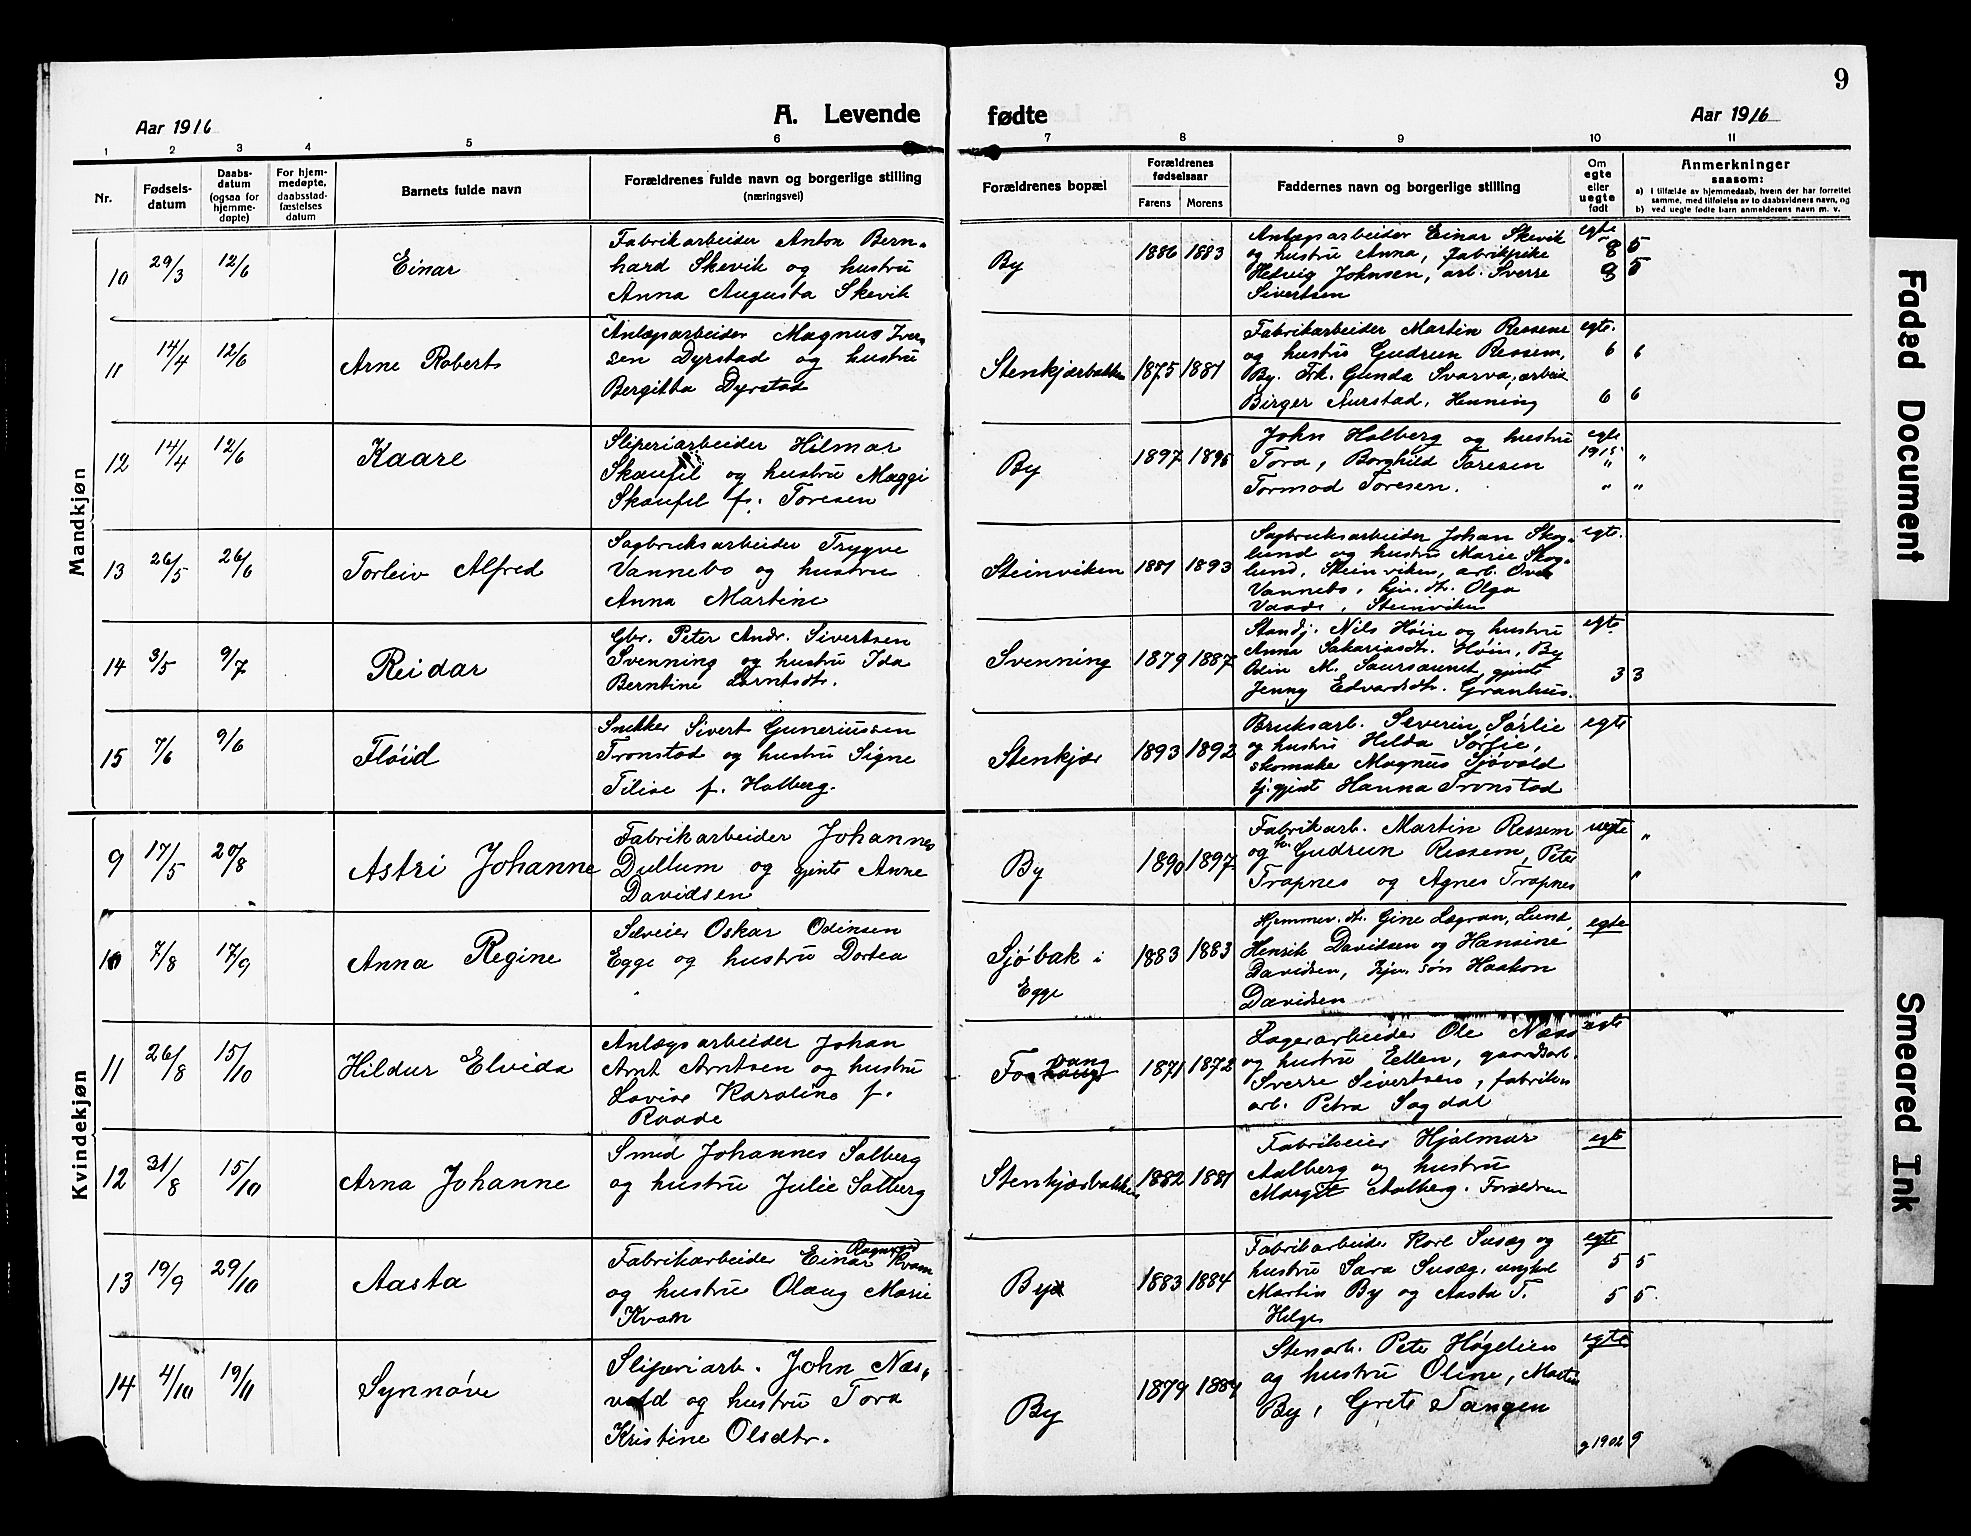 9
Aar 1916
A. Levende
fødte
Aar 1916
1 2 3 4 5 6 7 8 9 10 11
Nr.
Fødsels-
datum
Daabs-
datum
(ogsaa for
hjemme-
døpte)
For hjem-
medøpte,
daabsstad-
fæstelses
datum
Barnets fulde navn
Forældrenes fulde navn og borgerlige stilling
(næringsvei)
Forældrenes bopæl
Forældrenes
fødselsaar
Farens
Morens
Faddernes navn og borgerlige stilling
Om
egte
eller
uegte
født
Anmerkninger
saasom:
a) I tilfælde av hjemmedaab, hvem der har forrettet
samme, med tilføielse av to daabsvidners navn, og
b) ved uegte fødte barn anmelderens navn m. v.
Mandkjøn
10 29/3 12/6 Einar
Fabrikarbeider Anton Bern-
hard Skevik og hustru
Anna Augusta Skevik
By 1886 1883
Anlægsarbeider Einar Skevik
og hustru Anna, fabrikpike
Hedvig Johnsen, arb. Sverre
Sivertsen
egte
8 5
8 5
11 14/4 12/6 Arne Robert
Anlægsarbeider Magnus Iver-
sen Dyrstad og hustru
Bergitta Dyrstad
Stenkjærbakken 1875 1881
Fabrikarbeider Martin Ressem
og hustru Gudrun Ressem,
By. Frk. Gunda Svarva, arbeid
Birger Aurstad, Henning
egte.
6 6
6 6
12 14/4 12/6 Kaare
Sliperiarbeider Hilmar
Skaufel og hustru Maggi
Skaufel f. Toresen
By 1897 1895
John Holberg og hustru
Tora, Borghild Toresen
Tormod Toresen.
egte
1915
" "
" "
13 26/5 26/6 Torleiv Alfred
Sagbruksarbeider Trygve
Vannebo og hustru
Anna Martine
Steinviken 1881 1893
Sagbruksarbeider Johan Skog-
lund og hustru Marie Skog-
lund, Steinviken, arb. Ove
Vannebo, tjen. dtr. Olga
Vaade, Steinviken
egte.
14 3/5 9/7 Reidar
Gbr. Peter Andr. Sivertsen
Svenning og hustru Ida
Berntine Larntsdtr.
Svenning 1879 1887
Nils Høin og hustru
Anna Sakariasdtr. Høin, By
Odin M. Saursaunet, gjinte
Jenny Edvardsdtr. Granhus.
egte.
3 3
15 7/6 9/6 Fløid
Snekker Sivert Guneriussen
Tronstad og hustru Signe
Tilise f. Holberg.
Stenkjær 1893 1892
Bruksarb. Severin Sørlie
og hustru Hilda Sørlie,
skomaker Magnus Sjøvold
tj. gjinte Hanna Tronstad
egte
Kvindekjøn
9 17/5 20/8 Astri Johanne
Fabrikarbeider Johannes
Dullum og gjinte Anne
Davidsen
By 1890 1897
Fabrikarb. Martin Ressem
og hu. Gudrun Ressem, Peter
Trapnes og Agnes Trapnes
uegte "
"
10 7/8 17/9 Anna Regine
Selveier Oskar Odinsen
Egge og hustru Dortea
Sjøbak i
Egge
1883 1883
Hjemmev. dtr. Gine Lægran, Lund,
Henrik Davidsen og Hansine
Davidsen, hjv. søn Haakon
Davidsen
egte
11 26/8 15/10 Hildur Elvida
Anlægsarbeider Johan
Arnt Arntsen og hustru
Lovise Karoline f.
Raade
Fosvang
1871 1872
Lagerarbeider Ole Næss
og hustru Ellen, gaardsarb.
Sverre Sivertsen, fabrikn
arb. Petra Sagdal
egte
12 31/8 15/10 Arna Johanne
Smed Johannes Salberg
og hustru Julie Salberg
Stenkjærbakken 1882 1881
Fabrikeier Hjalmar
Aalberg og hustru
Margit Aalberg. Forældren
egte
13 19/9 29/10 Aasta
Fabrikarbeider Einar Ragnvald Kvam
og hustru Olaug Marie
Kvam
By 1883 1884
Fabrikarbeider Karl Susæg og
hustru Sara Susæg, ungkal
Martin By og Aasta T.
Helge
egte
5 5
5 5
14 4/10 19/11 Synnøve
Sliperiarb. John Næs-
vold og hustru Tora
Kristine Olsdtr.
By 1879 1884
Stenarb. Peter Høgelien
og hustru Oline, Martin
By, Grete Tangen
egte
g 1902 9
Faded Document
Smeared Ink